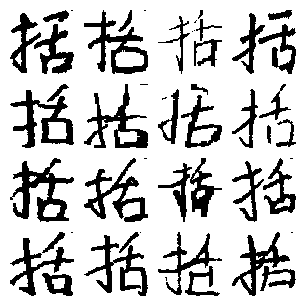 括括括括
括括括括
括括括括
括括括括